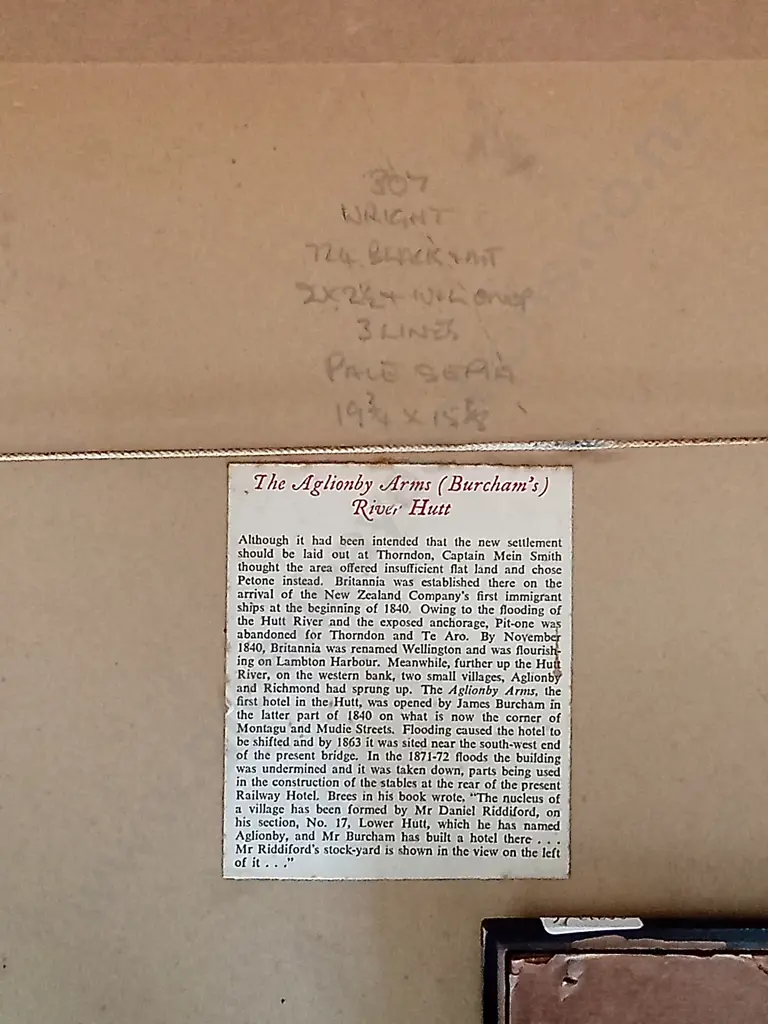 307
WRIGHT
724 BLACK
3 LINES
PALE SEPIA
19¾ X 15⅝
The Aglionby Arms (Burcham's)
River Hutt
Although it had been intended that the new settlement
should be laid out at Thorndon, Captain Mein Smith
thought the area offered insufficient flat land and chose
Petone instead. Britannia was established there on the
arrival of the New Zealand Company's first immigrant
ships at the beginning of 1840. Owing to the flooding of
the Hutt River and the exposed anchorage, Pit-one was
abandoned for Thorndon and Te Aro. By November
1840, Britannia was renamed Wellington and was flourish-
ing on Lambton Harbour. Meanwhile, further up the Hutt
River, on the western bank, two small villages, Aglionby
and Richmond had sprung up. The Aglionby Arms, the
first hotel in the Hutt, was opened by James Burcham in
the latter part of 1840 on what is now the corner of
Montagu and Mudie Streets. Flooding caused the hotel to
be shifted and by 1863 it was sited near the south-west end
of the present bridge. In the 1871-72 floods the building
was undermined and it was taken down, parts being used
in the construction of the stables at the rear of the present
Railway Hotel. Brees in his book wrote, "The nucleus of
a village has been formed by Mr Daniel Riddiford, on
his section, No. 17, Lower Hutt, which he has named
Aglionby, and Mr Burcham has built a hotel there . . .
Mr Riddiford's stock-yard is shown in the view on the left
of it . . ."